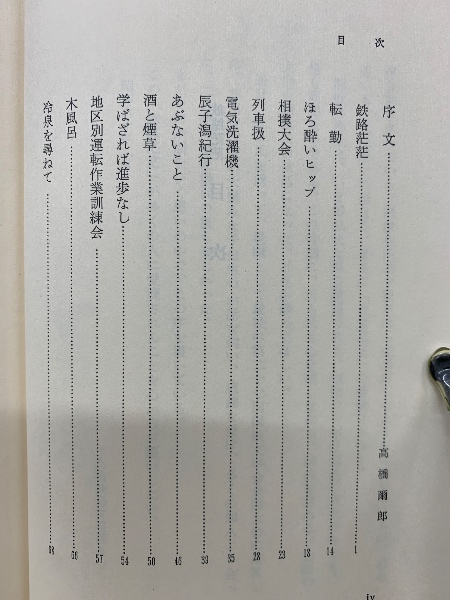 目次
序文 高橋爾郎
鉄路茫茫 1
転勤 14
ほろ酔いヒップ 18
相撲大会 23
列車扱 28
電気洗濯機 35
辰子潟紀行 39
あぶないこと 46
酒と煙草 50
学ばざれば進歩なし 54
地区別運転作業訓練会 57
木風呂 66
冷泉を尋ねて 68
iv